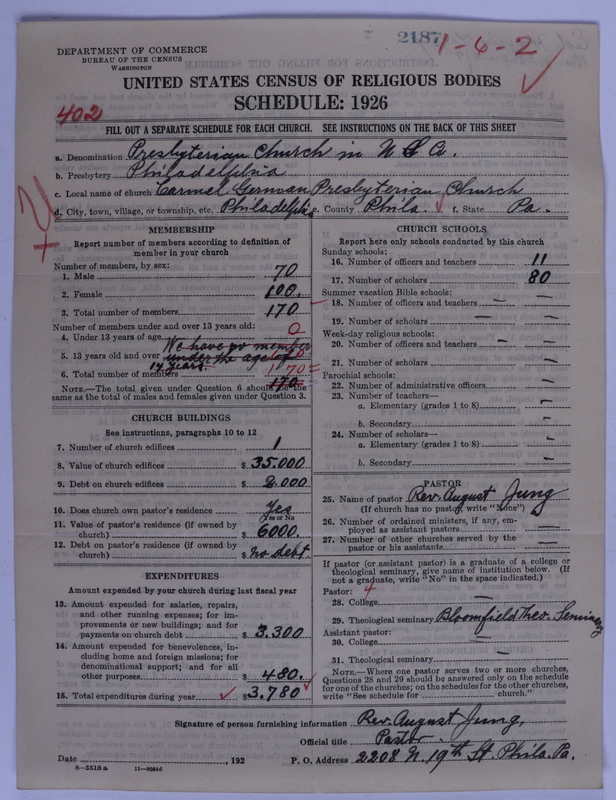 2187
1-6-2
DEPARTMENT OF COMMERCE
BUREAU OF THE CENSUS
WASHINGTON
UNITED STATES CENSUS OF RELIGIOUS BODIES
SCHEDULE: 1926
402
FILL OUT A SEPARATE SCHEDULE FOR EACH CHURCH. SEE INSTRUCTIONS ON THE BACK OF THIS SHEET
a. Denomination Presbyterian Church in U S A.
b. Presbytery Philadelphia
c. Local name of church Carmel German Presbyterian Church
d. City, town, village, or township, etc. Philadelphia e. County Phila. f. State Pa.
MEMBERSHIP
Report number of members according to definition of
member in your church
Number of members, by sex:
1. Male 70
2. Female 100.
3. Total number of members 170
Number of members under and over 13 years old: 0
4. Under 13 years of age We have no member
5. 13 years old and over under the age of
14 years.
6. Total number of members 170
170
NOTE.—The total given under Question 6 should be the
same as the total of males and females given under Question 3.
CHURCH BUILDINGS
See instructions, paragraphs 10 to 12
7. Number of church edifices 1
8. Value of church edifices $ 35.000
9. Debt on church edifices $ 2.000
10. Does church own pastor's residence? Yes
Yes or No
11. Value of pastor's residence (if owned by
church) $ 6000.
12. Debt on pastor's residence (if owned by
church) $ no debt
EXPENDITURES
Amount expended by your church during last fiscal year
13. Amount expended for salaries, repairs,
and other running expenses; for im-
provements or new buildings; and for
payments on church debt $ 3.300
14. Amount expended for benevolences, in-
cluding home and foreign missions; for
denominational support; and for all
other purposes $ 480.
15. Total expenditures during year $ 3.780
CHURCH SCHOOLS
Report here only schools conducted by this church
Sunday schools:
16. Number of officers and teachers 11
17. Number of scholars 80
Summer vacation Bible schools:
18. Number of officers and teachers —
19. Number of scholars —
Week-day religious schools:
20. Number of officers and teachers —
21. Number of scholars —
Parochial schools:
22. Number of administrative officers —
23. Number of teachers—
a. Elementary (grades 1 to 8) —
b. Secondary —
24. Number of scholars—
a. Elementary (grades 1 to 8) —
b. Secondary —
PASTOR
25. Name of pastor Rev. August Jung
(If church has no pastor, write "None")
26. Number of ordained ministers, if any, em-
ployed as assistant pastors —
27. Number of other churches served by the
pastor or his assistants —
If pastor (or assistant pastor) is a graduate of a college or
theological seminary, give name of institution below. (If
not a graduate, write "No" in the space indicated.)
Pastor: 4
28. College —
29. Theological seminary Bloomfield Theo. Seminary
Assistant pastor:
30. College —
31. Theological seminary —
NOTE.—Where one pastor serves two or more churches,
Questions 28 and 29 should be answered only on the schedule
for one of the churches; on the schedules for the other churches,
write "See schedule for church."
Signature of person furnishing information Rev. August Jung.
Official title Pastor
Date , 192
P. O. Address 2208 N. 19th St Phila. Pa.
8-5518a 11-9084d